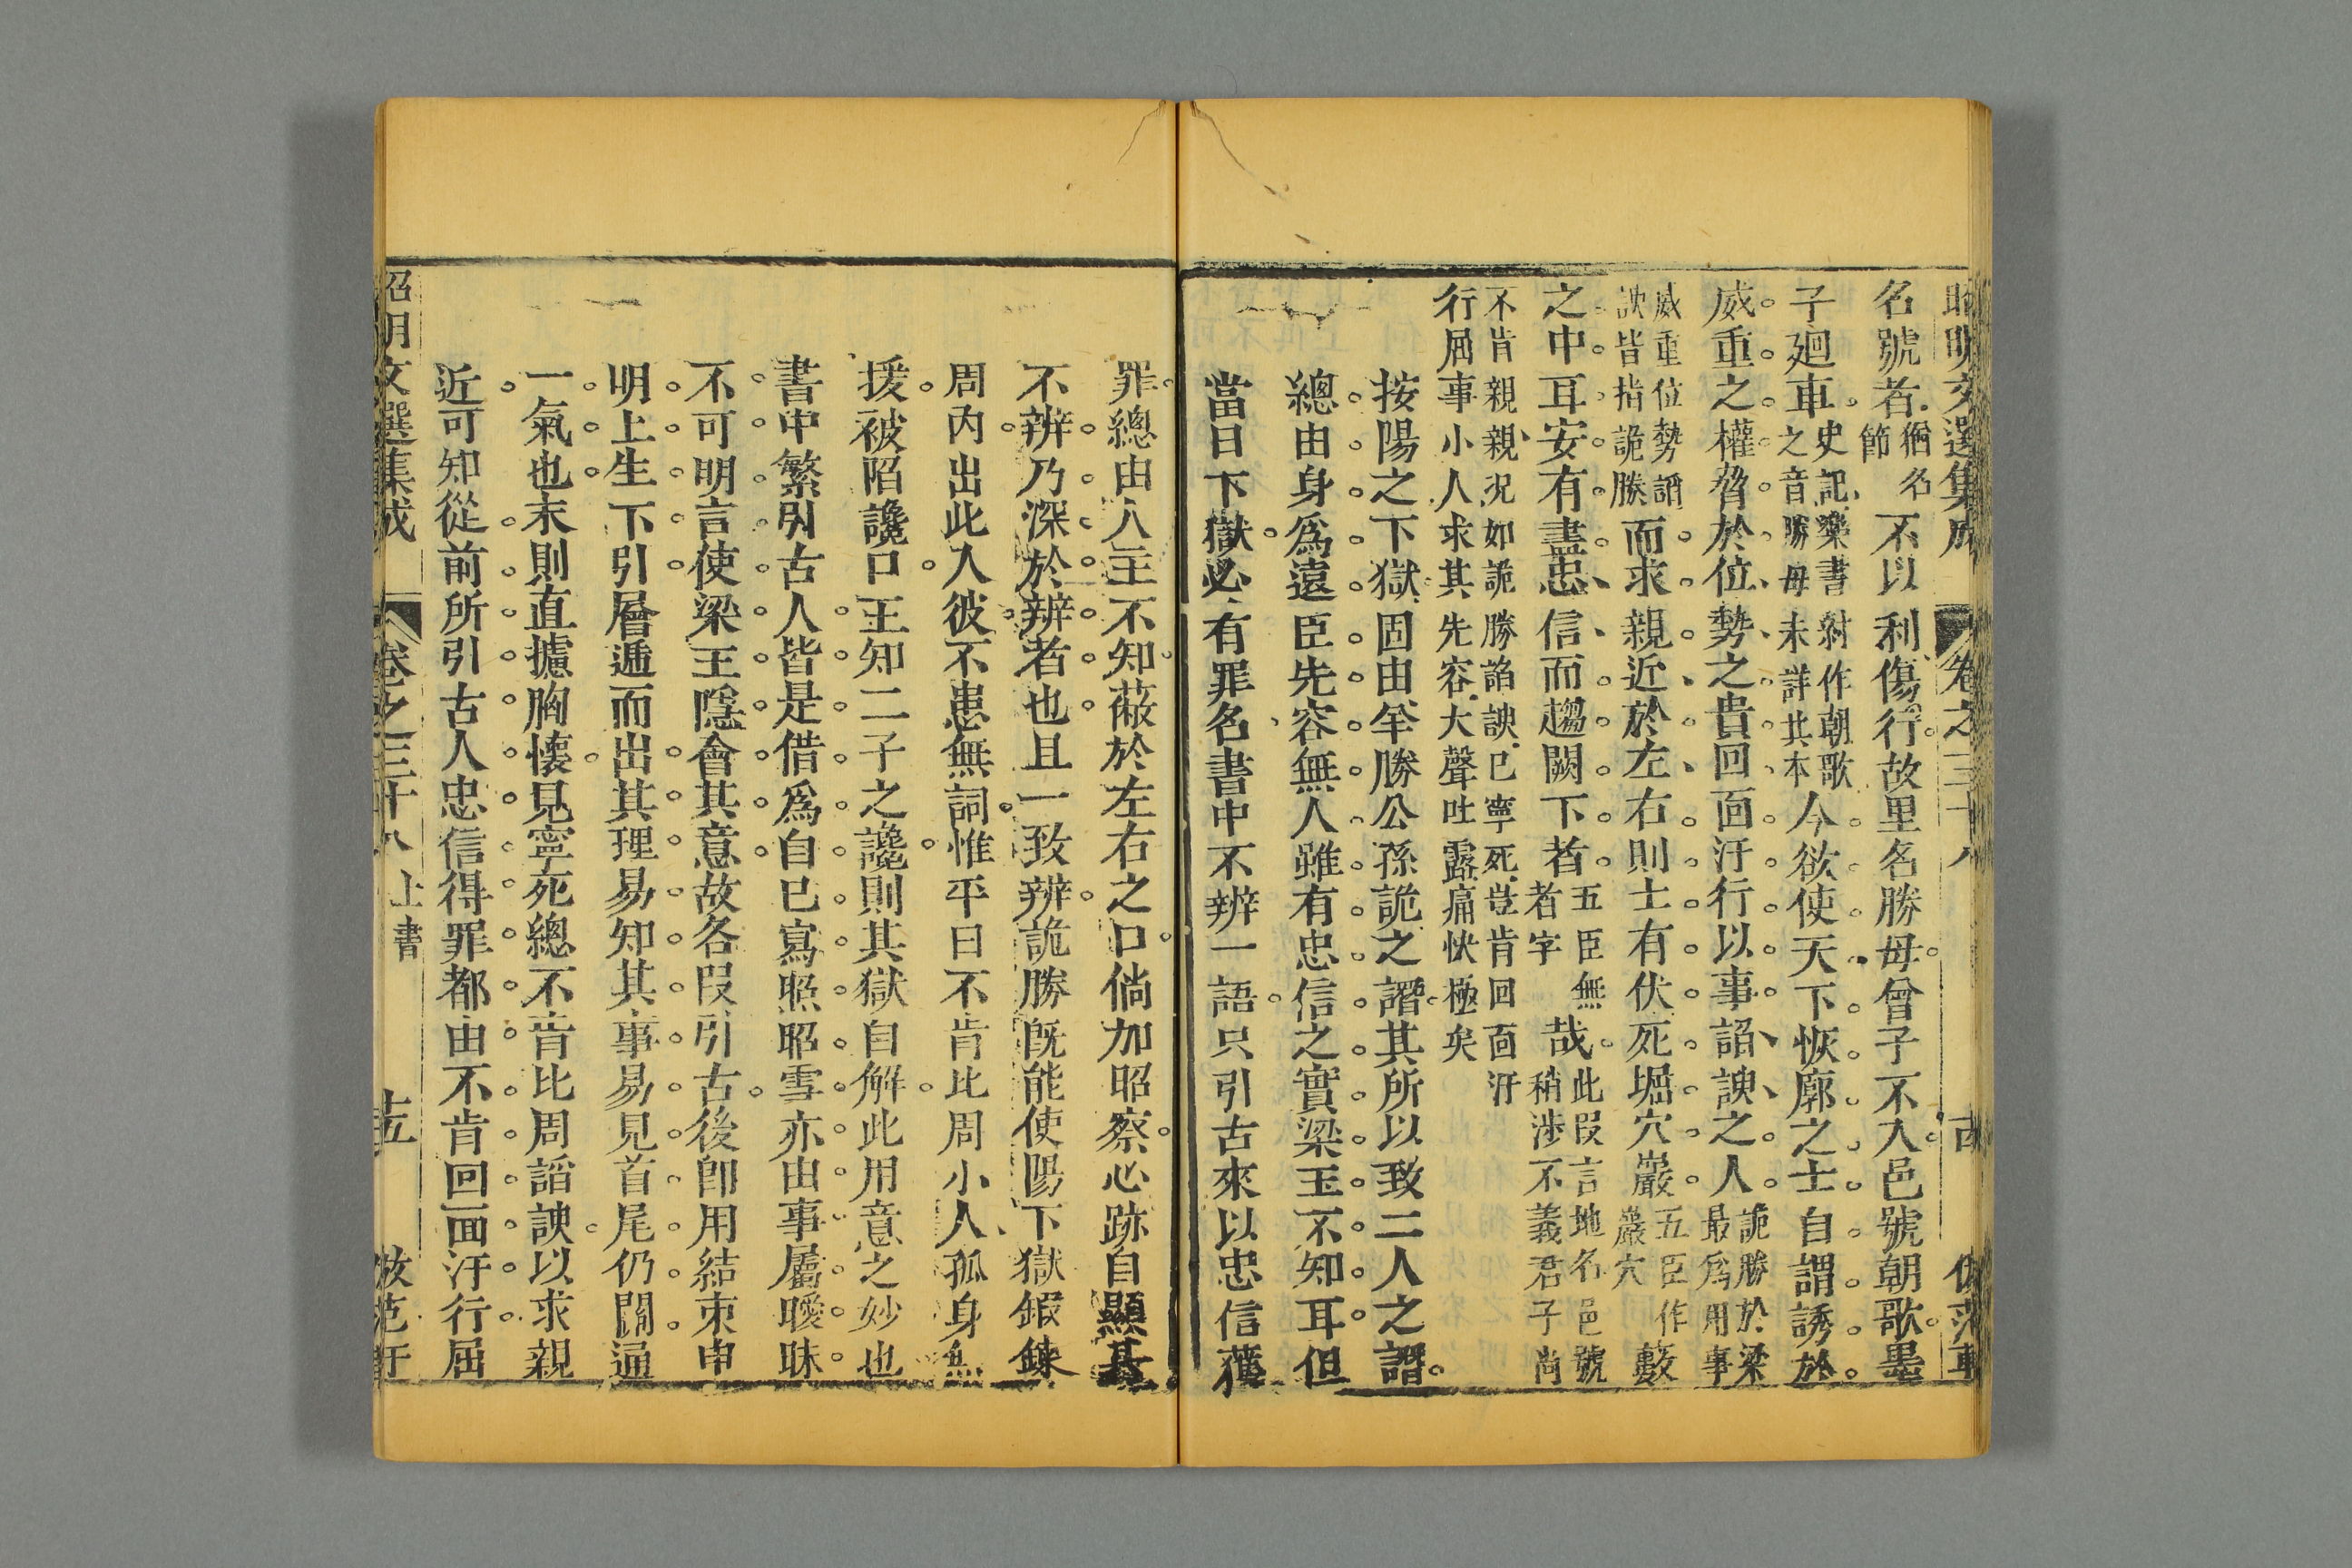 昭明文選集成 卷之三十八
名號者猶名節不以利傷行故里名勝母曾子不入邑號朝歌墨
子廻車史記樂書紂作朝歌之音勝母未詳其本今欲使天下恢廓之士自謂誘於
威重之權脅於位勢之貴回面汙行以事諂諛之人詭勝於梁最爲用事
威重位勢謂諛皆指詭勝而求親近於左右則士有伏死堀穴巖五臣作巖穴藪
之中耳安有盡忠信而趨闕下者五臣無者字哉此段言地名邑號稍涉不義君子尚
不肯親親況如詭勝諂諛已寧死豈肯回面汙行屈事小人求其先容大聲吐露痛快極矣
按陽之下獄固由羊勝公孫詭之譖其所以致二人之譖
總由身爲遠臣先容無人雖有忠信之實梁王不知耳但
當日下獄必有罪名書中不辨一語只引古來以忠信獲
罪總由人主不知蔽於左右之口倘加昭察心跡自顯甚
不辨乃深於辨者也且一致辨詭勝旣能使陽下獄鍛鍊
周內出此入彼不患無詞惟平日不肯比周小人孤身無
援被陷讒口王知二子之讒則其獄自解此用意之妙也
書中繁引古人皆是借爲自已寫照昭雪亦由事屬曖昧
不可明言使梁王隱會其意故各段引古後卽用結束申
明上生下引層遞而出其理易知其事易見首尾仍關通
一氣也末則直攄胸懷見寧死總不肯比周諂諛以求親
近可知從前所引古人忠信得罪都由不肯回面汙行屈
昭明文選集成 卷之三十八 上書 十五 倣范軒